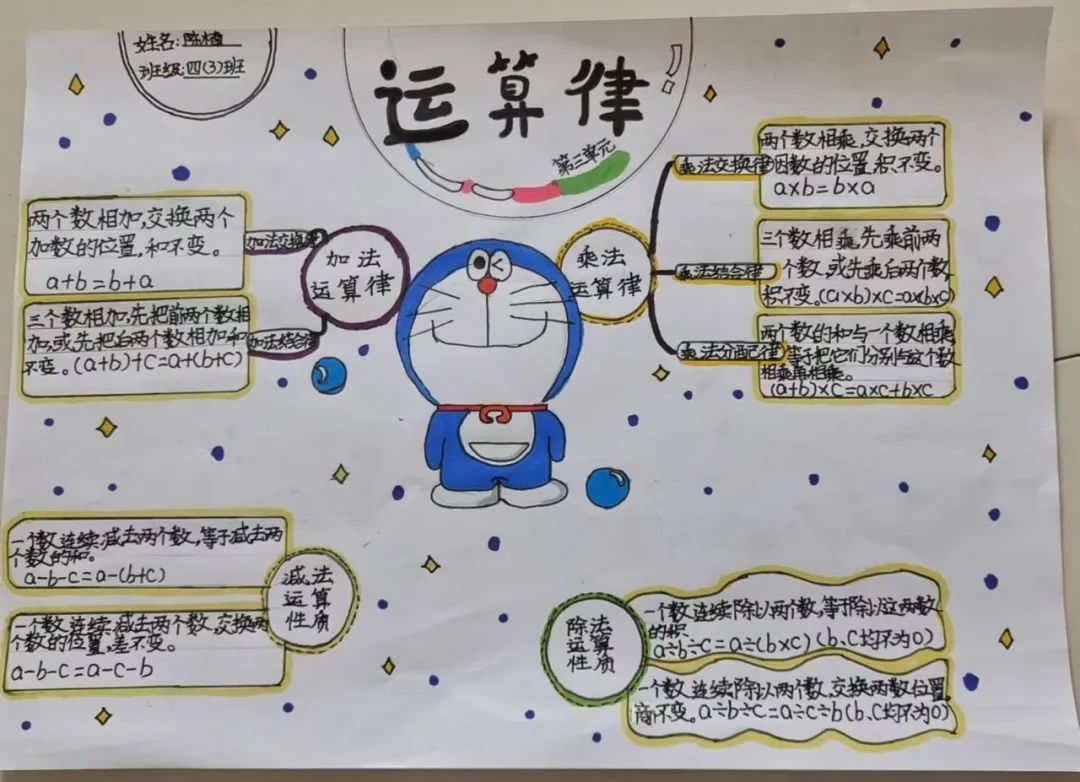 姓名:陈楠
班级:四(3)班
运算律
第三单元
加法
运算律
加法交换律
两个数相加,交换两个
加数的位置,和不变。
a+b=b+a
加法结合律
三个数相加,先把前两个数相
加,或先把后两个数相加和
不变。(a+b)+c=a+(b+c)
乘法
运算律
乘法交换律
两个数相乘,交换两个
因数的位置,积不变。
a×b=b×a
乘法结合律
三个数相乘,先乘前两
个数,或先乘后两个数,
积不变。(a×b)×c=a×b×c)
乘法分配律
两个数的和与一个数相乘,
等于把它们分别与这个数
相乘再相乘。
(a+b)×c=a×c+b×c
减法
运算
性质
一个数连续减去两个数,等于减去两
个数的和。
a-b-c=a-(b+c)
一个数连续减去两个数,交换两
个数的位置,差不变。
a-b-c=a-c-b
除法
运算
性质
一个数连续除以两个数,等于除以这两数
的积
a÷b÷c=a÷(b×c)(b、c均不为0)
一个数连续除以两个数,交换两数位置
商不变。a÷b÷c=a÷c÷b(b、c均不为0)